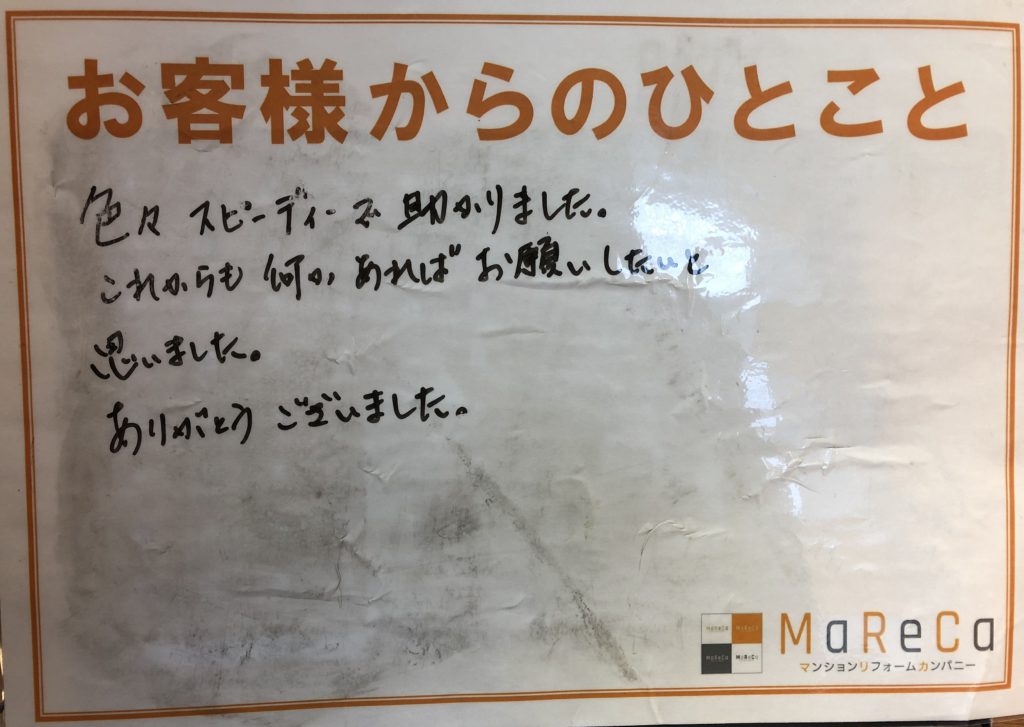 お客様からのひとこと
色々 スピーディーで 助かりました。
これからも 何か あれば お願いしたいと
思いました。
ありがとう ございました。
MaReCa
マンションリフォームカンパニー